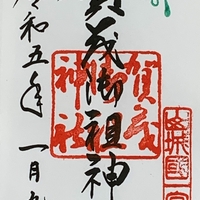 山城國一宮
賀茂御祖神
賀茂御祖神社
令和五年一月